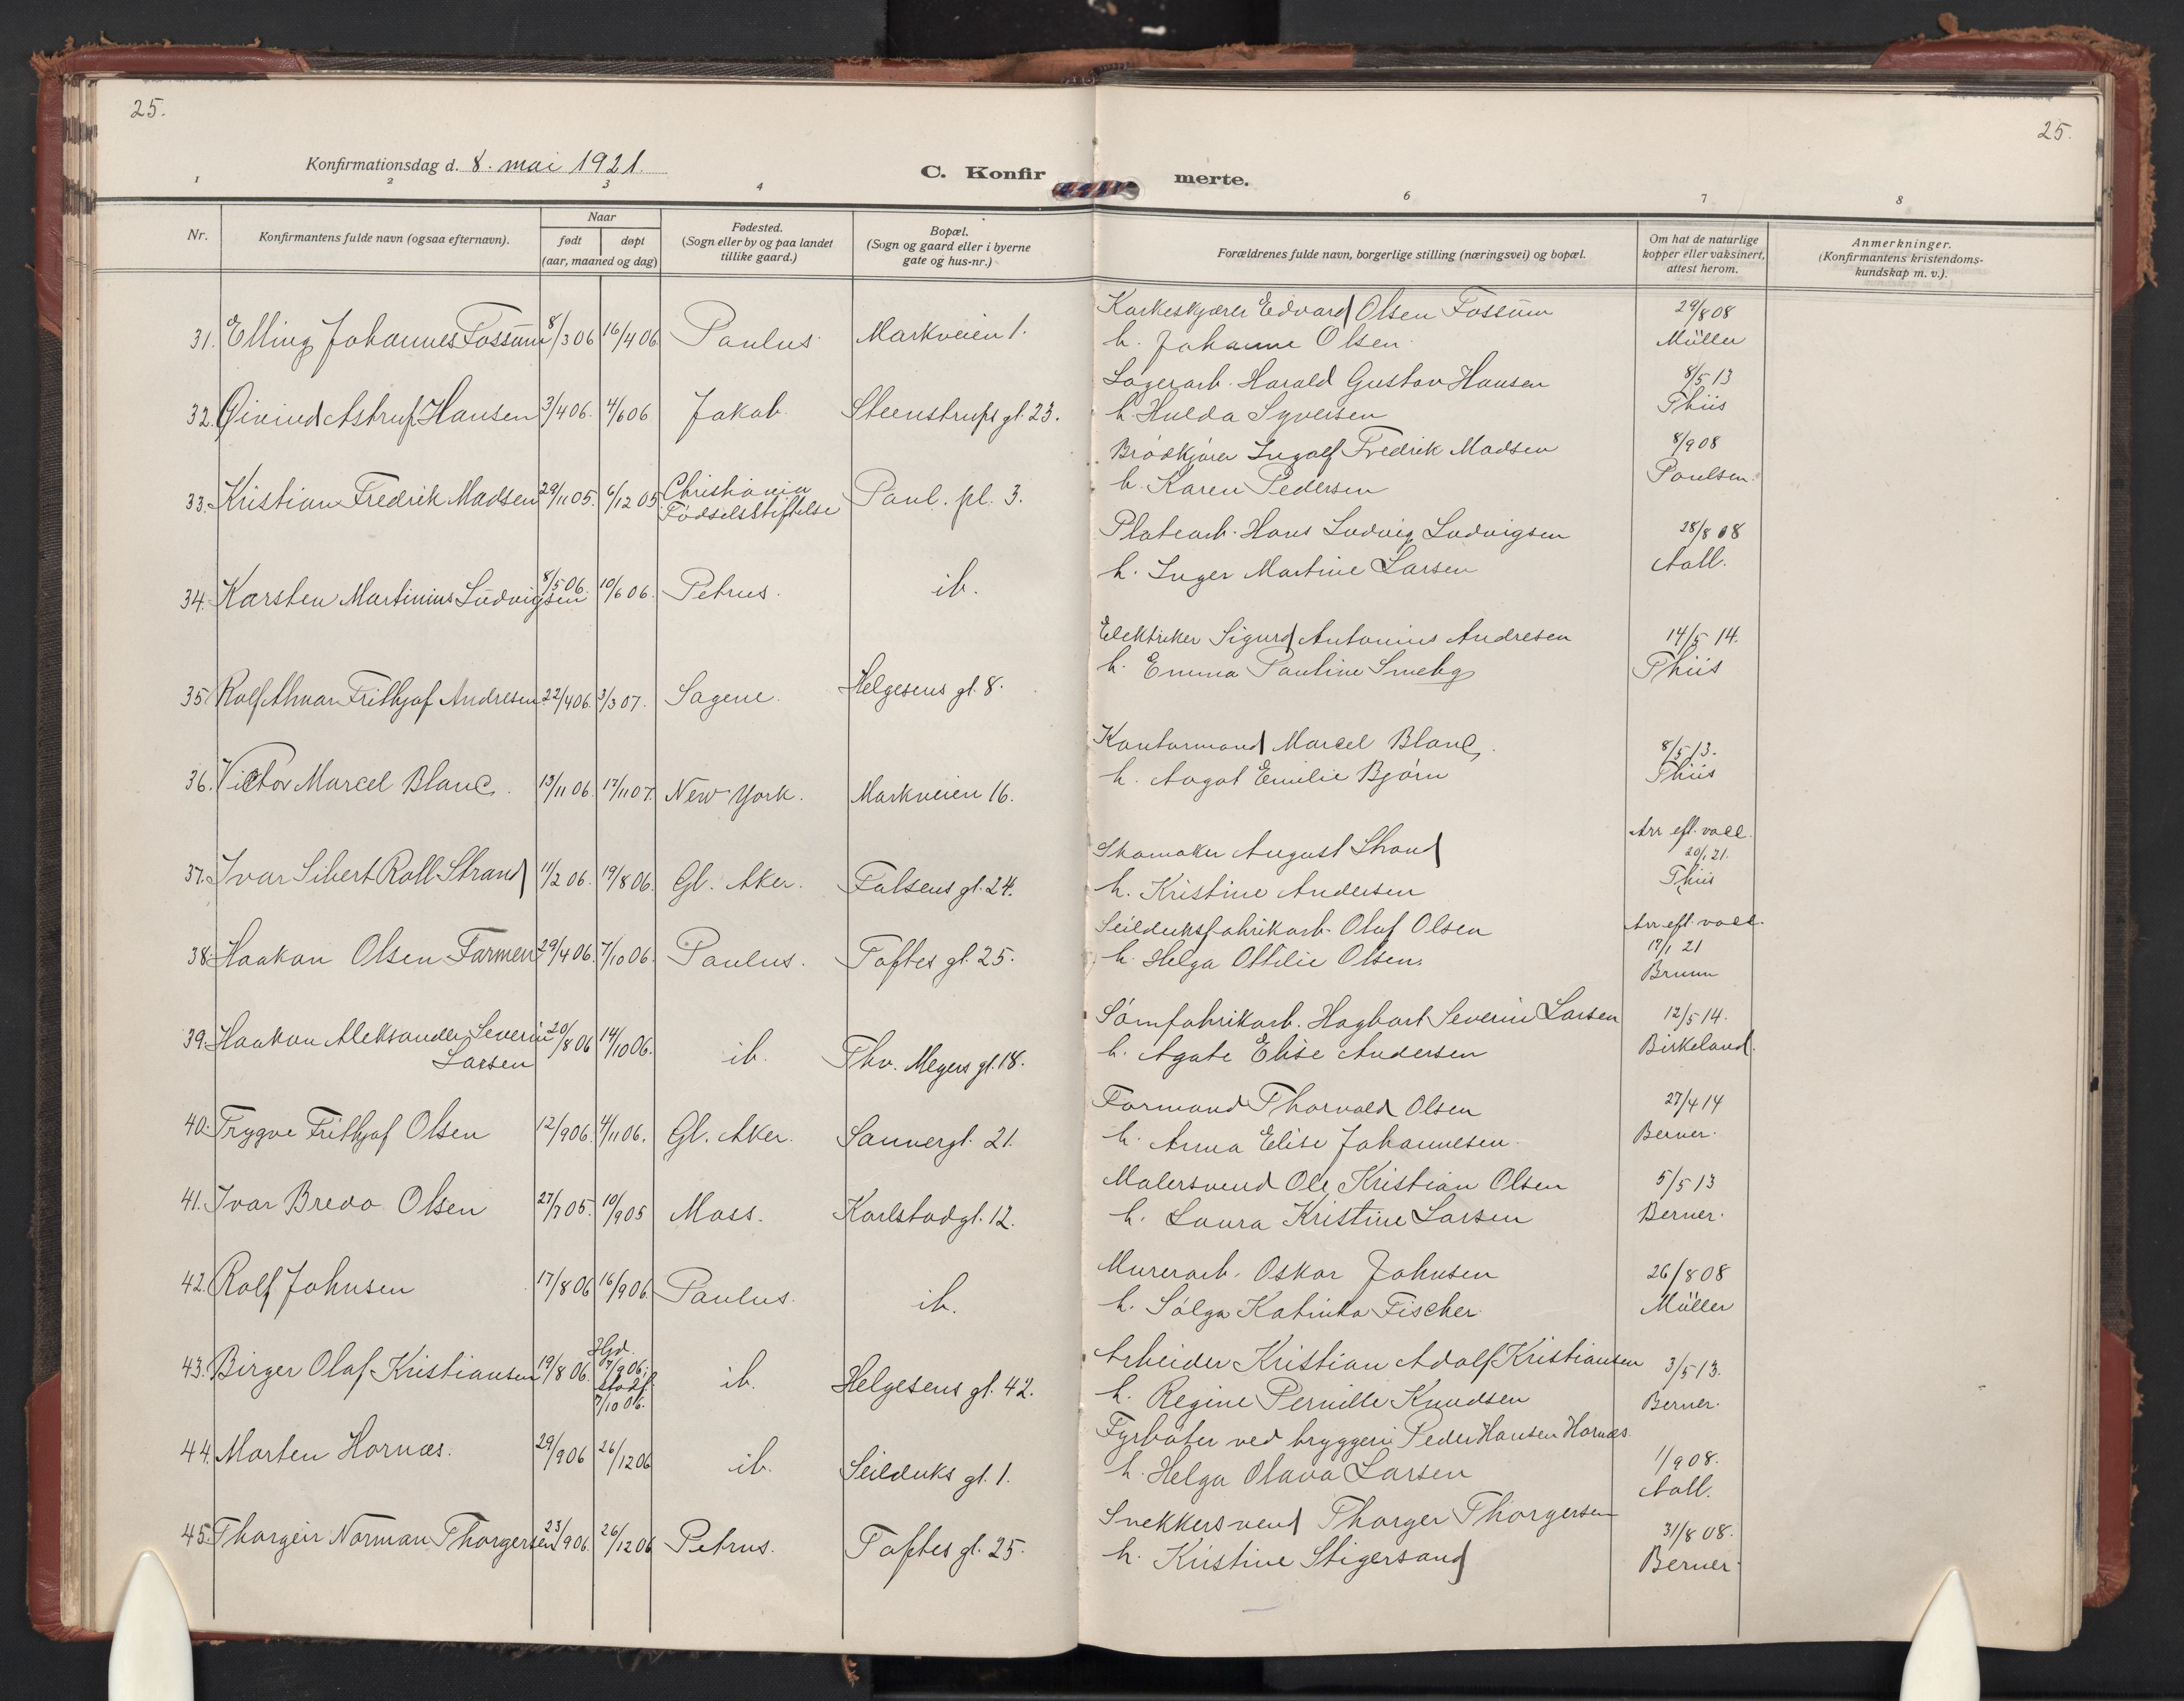 25.
25.
Konfirmationsdag d. 8. mai 1921.
C. Konfir merte.
1 2 3 4 6 7 8
Nr.
Konfirmantens fulde navn (ogsaa efternavn).
Naar
født døpt
(aar, maaned og dag)
Fødested.
(Sogn eller by og paa landet
tillike gaard.)
Bopæl.
(Sogn og gaard eller i byerne
gate og hus-nr.)
Forældrenes fulde navn, borgerlige stilling (næringsvei) og bopæl.
Om hat de naturlige
kopper eller vaksinert,
attest herom.
Anmerkninger.
(Konfirmantens kristendoms-
kundskap m. v.).
31. Elling Johannes Fossum 8/3 06 16/4 06 Paulus Markveien 1.
Korkeskjærer Edvard Olsen Fossum 29/8 08
h. Johanne Olsen Müller
32. Øivind Astrup Hansen 3/4 06. 4/6 06 Jakob. Steenstrups gt. 23.
Lagerarb. Harald Gustav Hansen 8/5 13
h. Hulda Syversen Thiis
33. Kristian Fredrik Madsen 29/11 05. 6/12 05 Christiania Fødselsstiftelse Paul. pl. 3.
Brødkjører Ingolf Fredrik Madsen 8/9 08
h. Karen Pedersen Poulsen.
34. Karsten Martinius Ludvigsen 8/5 06. 10/6 06. Petrus. ib.
Platearb. Hans Ludvig Ludvigsen 28/8 08
h. Inger Martine Larsen Aall.
35. Rolf Frithjof Andresen 22/4 06. 3/3 07. Sagene. Helgesens gt. 8.
Elektriker Sigurd Antonius Andresen 14/5 14.
h. Emma Pauline Smeby Thiis
36. Victor Marcel Blanc. 13/11 06. 17/11 07. New York. Markveien 16.
Kontormand Marcel Blanc. 8/5 13.
h. Aagot Emilie Bjørn Thiis
37. Ivar Sibert Roll Strand 11/2 06. 19/8 06. Gl. Aker. Falsens gt. 24.
Skomaker August Strand Arr eft. vacc. 20/1 21.
h. Kristine Andersen Thiis
38. Haakon Olsen Farmen 29/4 06. 7/10 06. Paulus. Toftes gt. 25.
Seilduksfabrikarb. Oluf Olsen Arr eft. vacc. 17/1 21
h. Helga Ottilie Olsen. Bruun
39. Haakon Aleksander Severin Larsen 20/8 06 14/10 06. ib. Thv. Meyers gt. 18.
Sømfabrikarb. Hagbart Severin Larsen 12/5 14.
h. Agate Elise Andersen Birkeland.
40. Trygve Frithjof Olsen 12/9 06. 4/11 06. Gl. Aker. Sannergt. 21.
Formand Thorvald Olsen 27/4 14
h. Anna Elise Johannesen. Berner.
41. Ivar Bredo Olsen 27/7 05. 10/9 05 Moss. Karlstadgt. 12.
Malersvend Ole Kristian Olsen 5/5 13
h. Laura Kristine Larsen Berner.
42. Rolf Johnsen 17/8 06 16/9 06. Paulus. ib.
Murerarb. Oskar Johnsen 26/8 08
h. Solga Katinka Fischer. Müller
43. Birger Olaf Kristiansen 19/8 06. Hjd. 7/9 06; stadf. 7/10 06. ib. Helgesens gt. 42.
Arbeider Kristian Adolf Kristiansen 3/5 13.
h. Regine Pernille Knudsen Berner.
44. Morten Hornæs. 29/9 06 26/12 06 ib. Seilduks gt. 1.
Fyrbøter ved bryggeri Peder Hansen Hornæs. 1/9 08.
h. Helga Olava Larsen Aall.
45. Thorgeir Norman Thorgersen 23/9 06. 26/12 06 Petrus. Toftes gt. 25.
Snekkersvend Thorger Thorgersen 31/8 08.
h. Kristine Stigersand Berner.